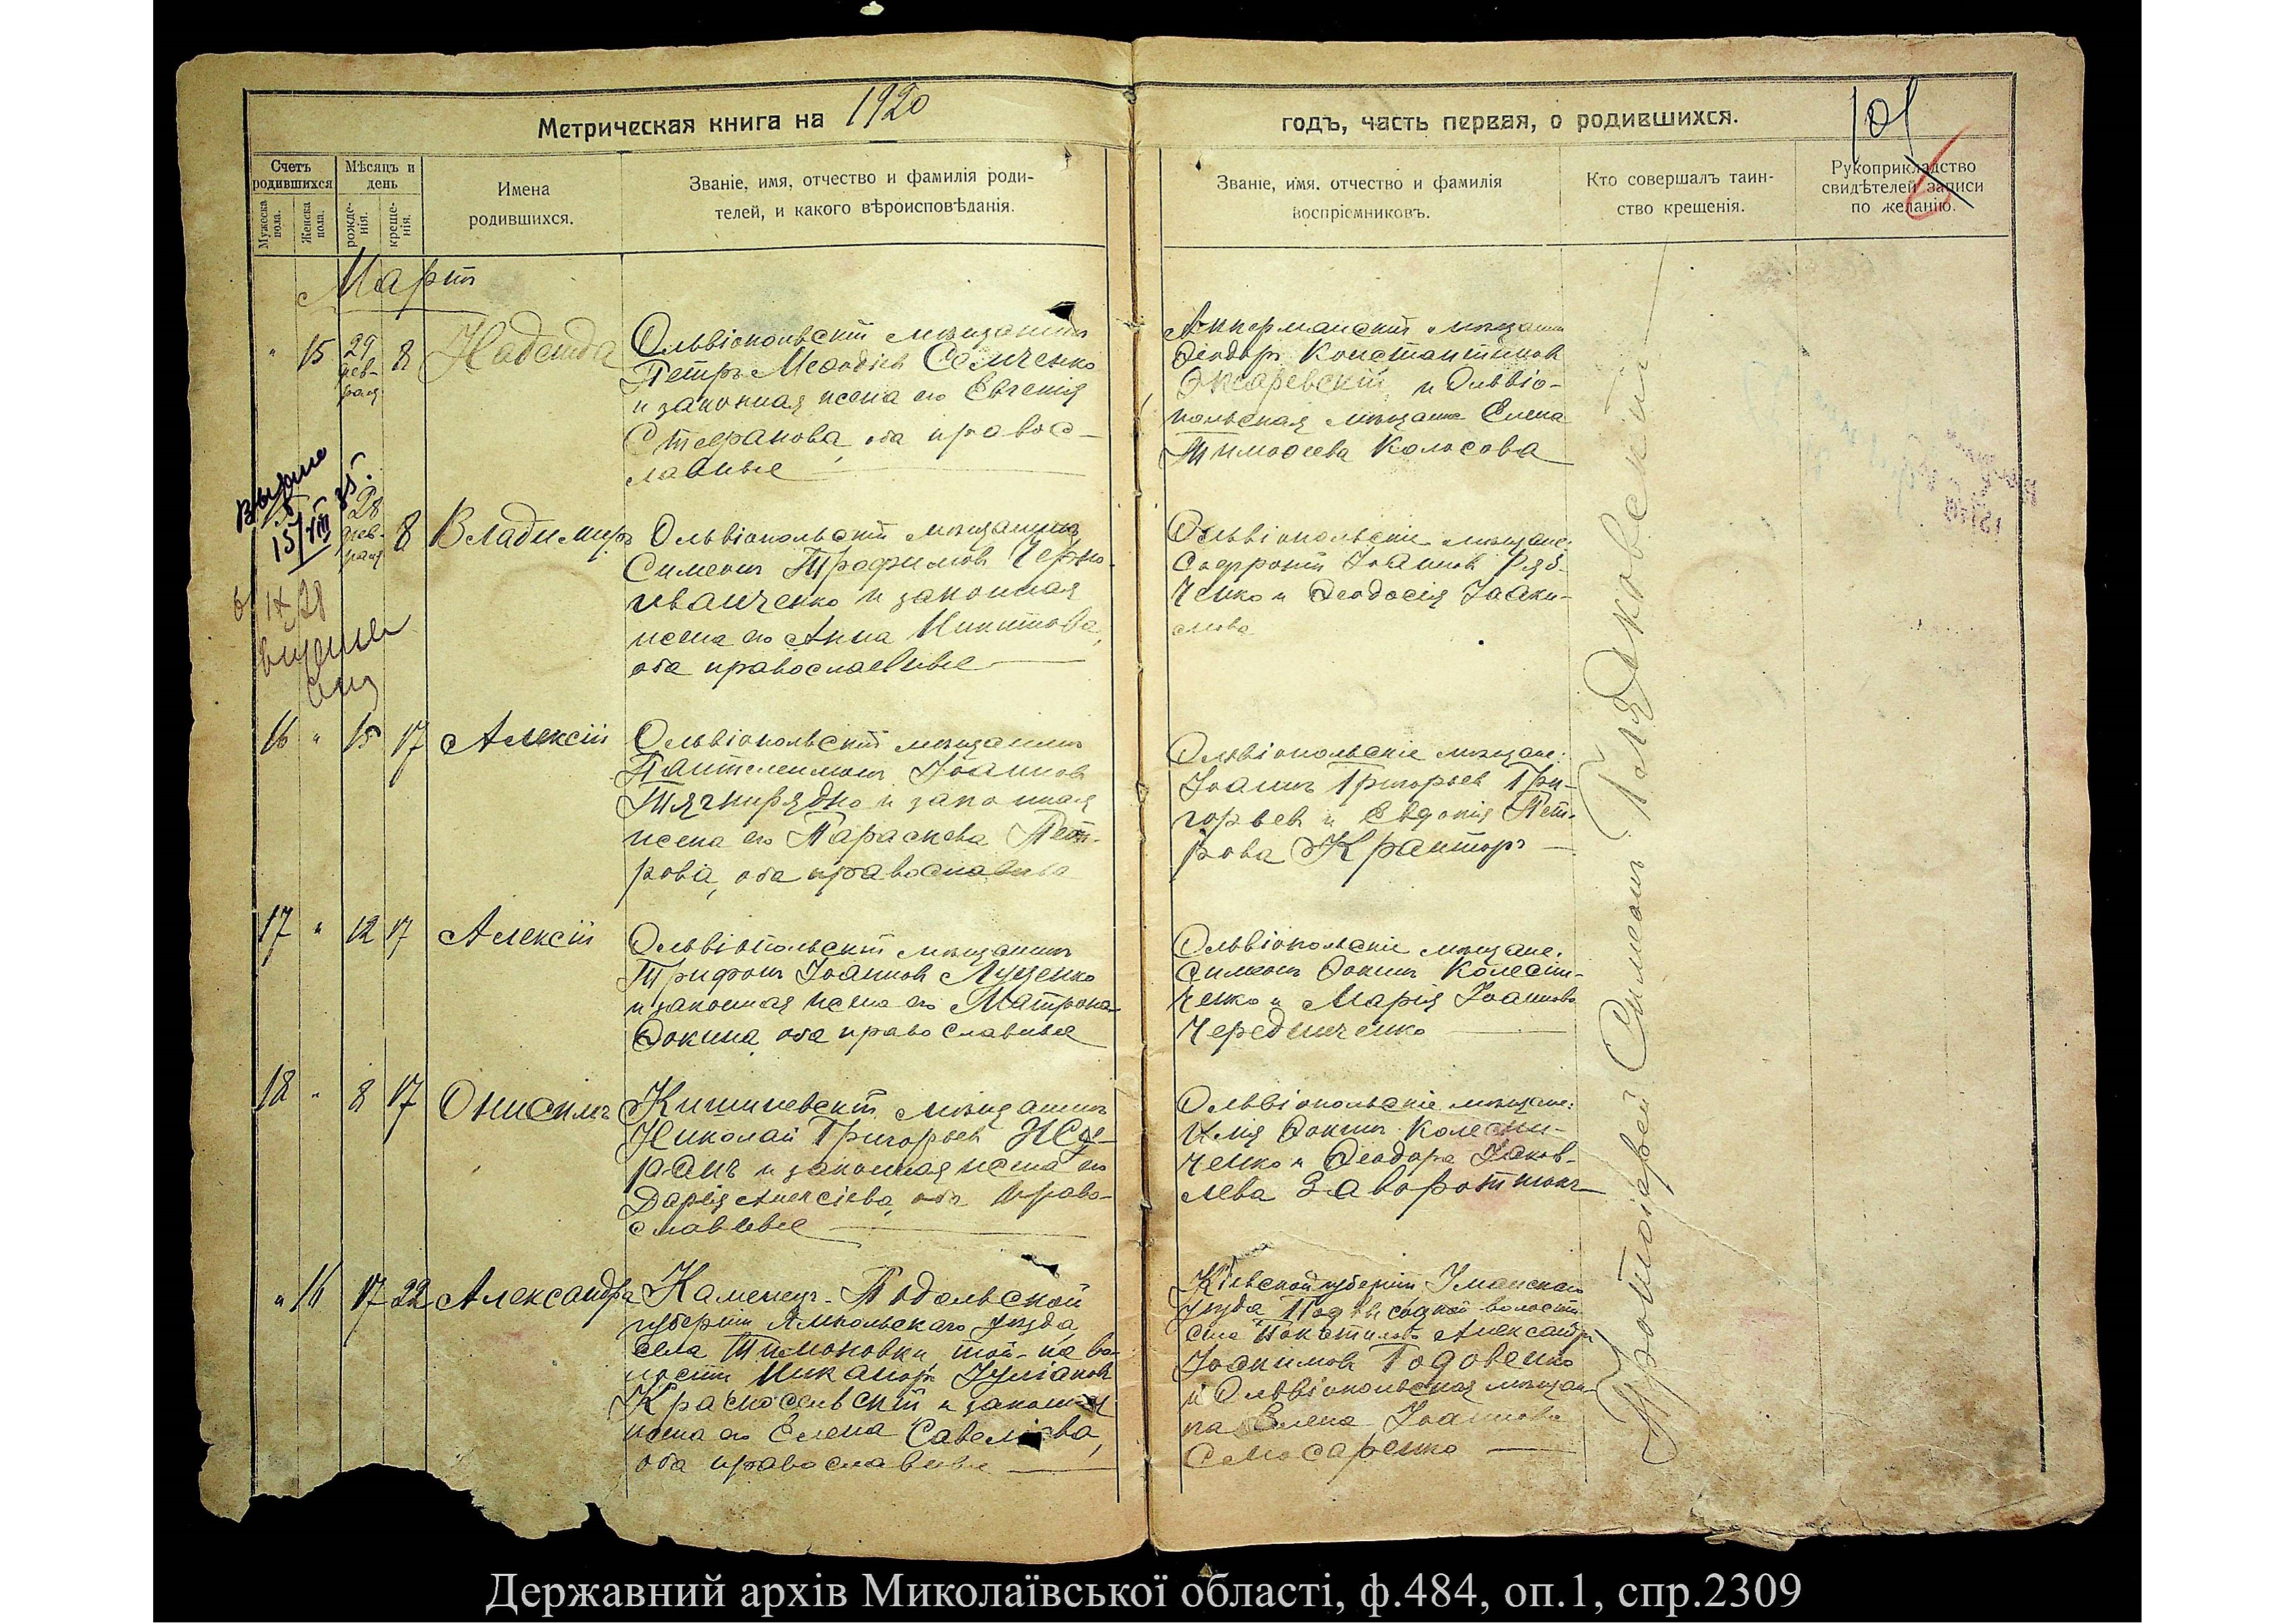 Метрическая книга на 1920
годъ, часть первая, о родившихся.
101
Счетъ родившихся
Мужеска пола.
Женска пола.
Мѣсяцъ и день
рожде-нія.
креще-нія.
Имена
родившихся.
Званіе, имя, отчество и фамилія роди-
телей, и какого вѣроисповѣданія.
Званіе, имя, отчество и фамилія
воспріемниковъ.
Кто совершалъ таин-
ство крещенія.
Рукоприкладство
свидѣтелей записи
по желанію.
Мартъ
" 15 29 фев-раля 8 Надежда
Ольвіопольскій мѣщанинъ
Петръ Меѳодіевъ Семченко
и законная жена его Евгенія
Стефанова, оба правос-
лавные
Аккерманскій мѣщанинъ
Ѳеодоръ Константиновъ
и Ольвіо-
польская мѣщанка Елена
Тимоѳеева Колосова
15/VIII 35.
28 фев-раля 8 Владимиръ
Ольвіопольскій мѣщанинъ
Симеонъ Трофимовъ Черно-
иванченко и законная
жена его Анна Никитова,
оба православные
Ольвіопольскіе мѣщане:
Софроній Іоанновъ Ряб-
ченко и Ѳеодосія Іоаки-
мова
16 " 15 17 Алексій
Ольвіопольскій мѣщанинъ
Пантелеимонъ Іоанновъ
Тягнирядно и законная
жена его Параскева Пет-
рова, оба православные
Ольвіопольскіе мѣщане:
Іоаннъ Григорьевъ Гри-
горьевъ и Евдокія Пет-
рова Кранторъ
17 " 12 17 Алексій
Ольвіопольскій мѣщанинъ
Трифонъ Іоанновъ Луценко
и законная жена его Матрона
Ѳокина, оба православные
Ольвіопольскіе мѣщане:
Симеонъ Ѳокинъ Колесни-
ченко и Марія Іоаннова
Чередниченко
18 " 8 17 Онисимъ
Кишиневскій мѣщанинъ
Николай Григорьевъ
и законная жена его
Дарія Алексіева, оба право-
славные
Ольвіопольскіе мѣщане:
Илія Ѳокинъ Колесни-
ченко и Ѳеодора Іаков-
лева Заворотнюкъ
" 16 17 22 Александра
Каменецъ-Подольской
губерніи Ямпольскаго уѣзда
села Тимоновки той-же во-
лости Никаноръ Іуліановъ
Красносельскій и законная
жена его Елена Савеліева,
оба православные
Кіевской губерніи Уманскаго
уѣзда Подвысоцкой волости
села Александръ
Іоакимовъ Годовенко
и Ольвіопольская мѣщан-
ка Елена Іоаннова
Слюсаренко
Протоіерей Симеонъ Голяковскій
Державний архів Миколаївської області, ф.484, оп.1, спр.2309